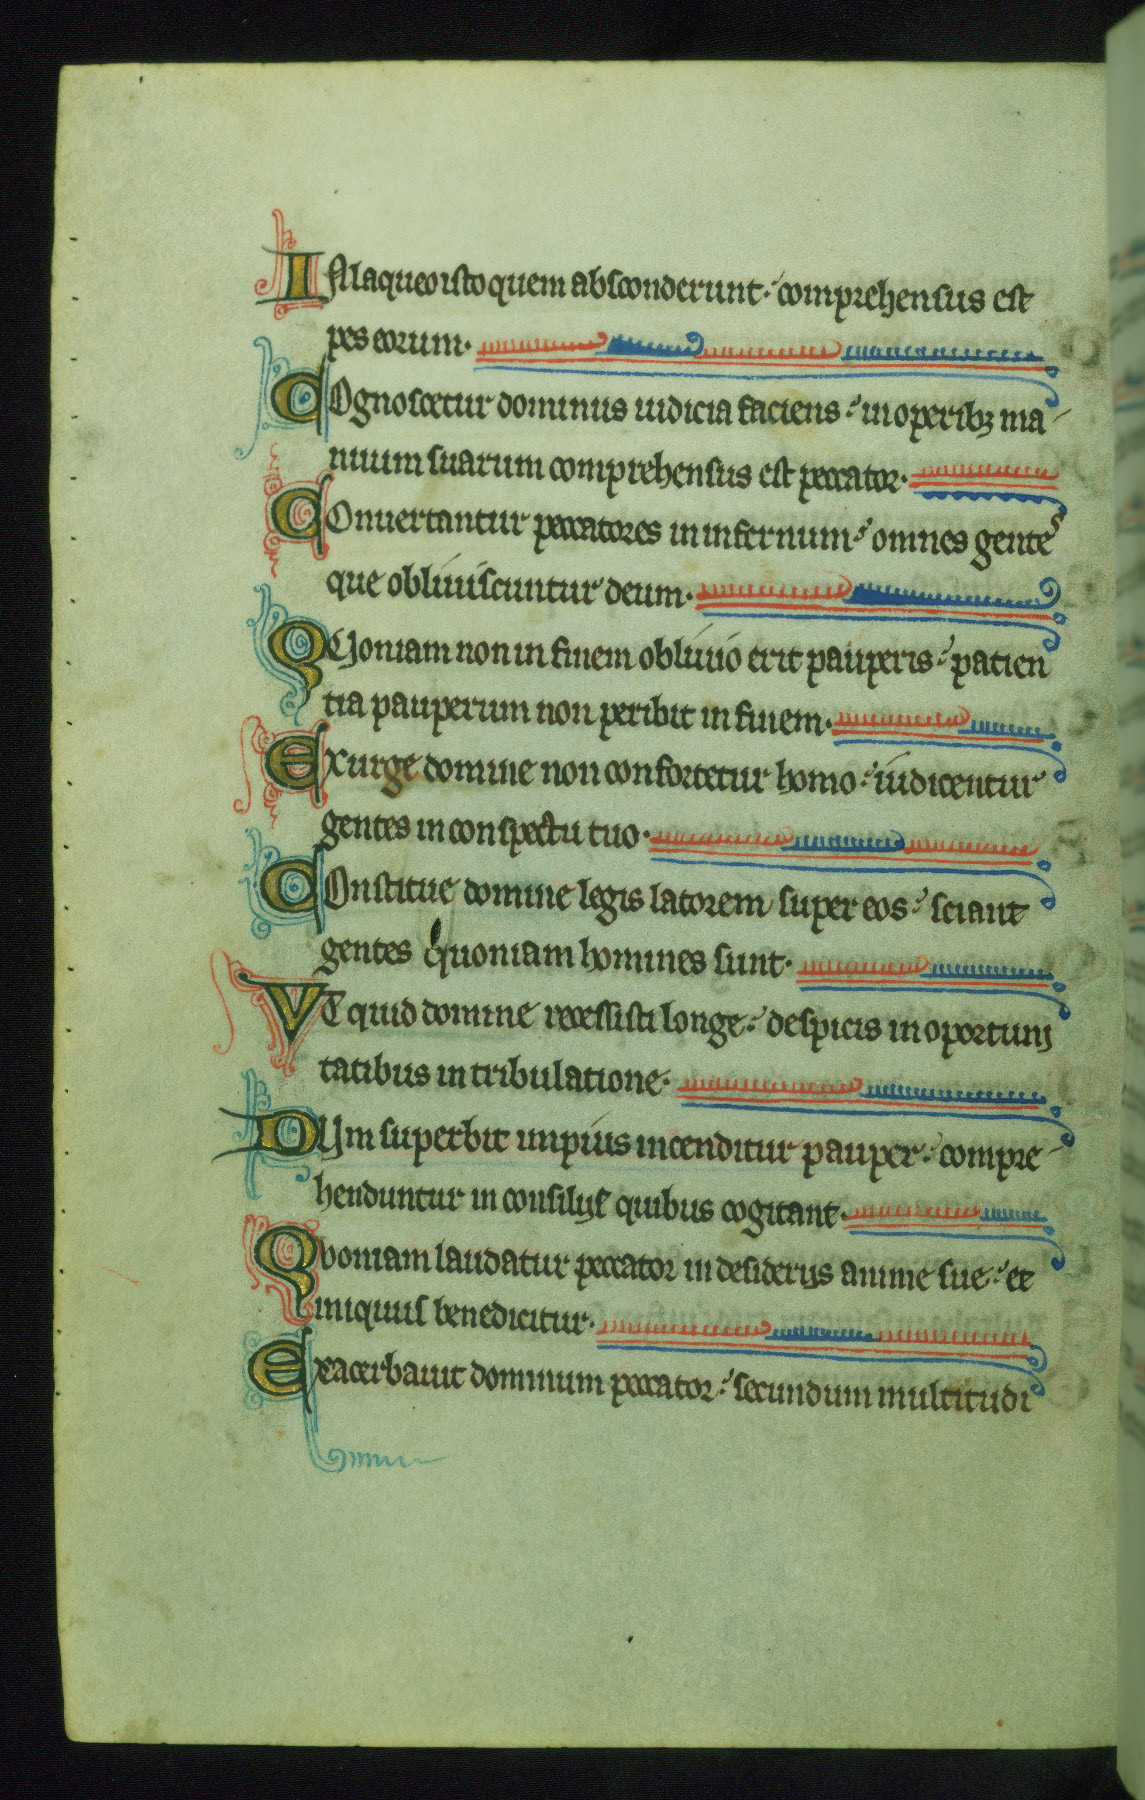 IN laqueo isto quem absconderunt· comprehensus est
pes eorum·
COgnoscetur dominus iudicia faciens· in operibꝫ ma
nuum suarum comprehensus est peccator·
COnuertantur peccatores in infernum· omnes gentes
que obliuiscuntur deum·
QUoniam non in finem obliuio erit pauperis· patien
tia pauperum non peribit in finem·
Exurge domine non confortetur homo· iudicentur
gentes in conspectu tuo·
COnstitue domine legis latorem super eos· sciant
gentes quoniam homines sunt·
VT quid domine recessisti longe· despicis in oportuni
tatibus in tribulatione·
DUm superbit impius incenditur pauper· compre
henduntur in consilijs quibus cogitant·
Quoniam laudatur peccator in desiderijs anime sue· et
iniquus benedicitur·
Exacerbauit dominum peccator· secundum multitudi